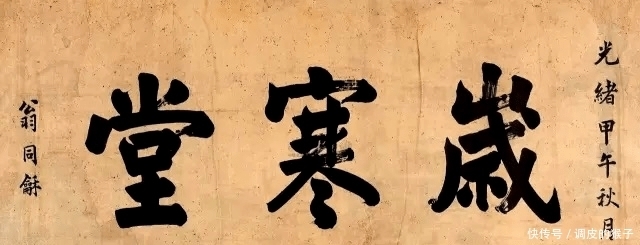 光緒甲午秋月
歲寒堂
翁同龢
快传号／调皮的猴子